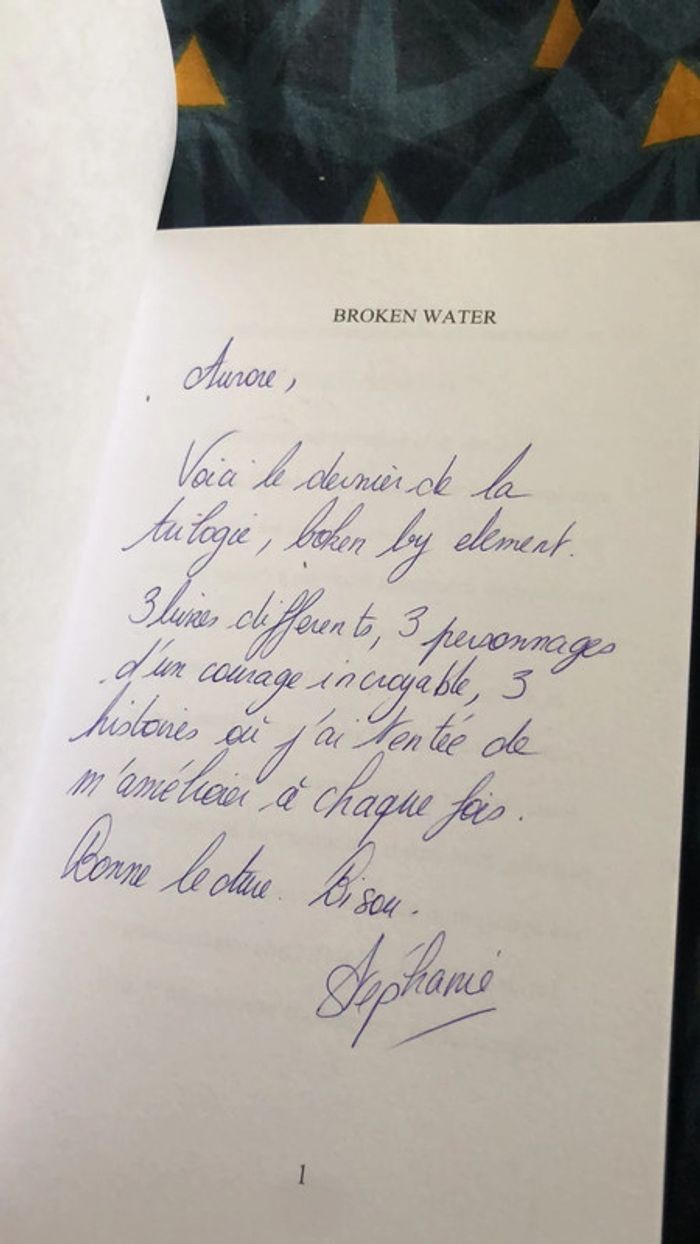 BROKEN WATER
Aurore,
Voici le dernier de la
trilogie, boken by element.
3 livres differents, 3 personnages
d'un courage incroyable, 3
histoires où j'ai tentée de
m'améliorer à chaque fois.
Bonne lecture. Bisou.
Stéphanie
1